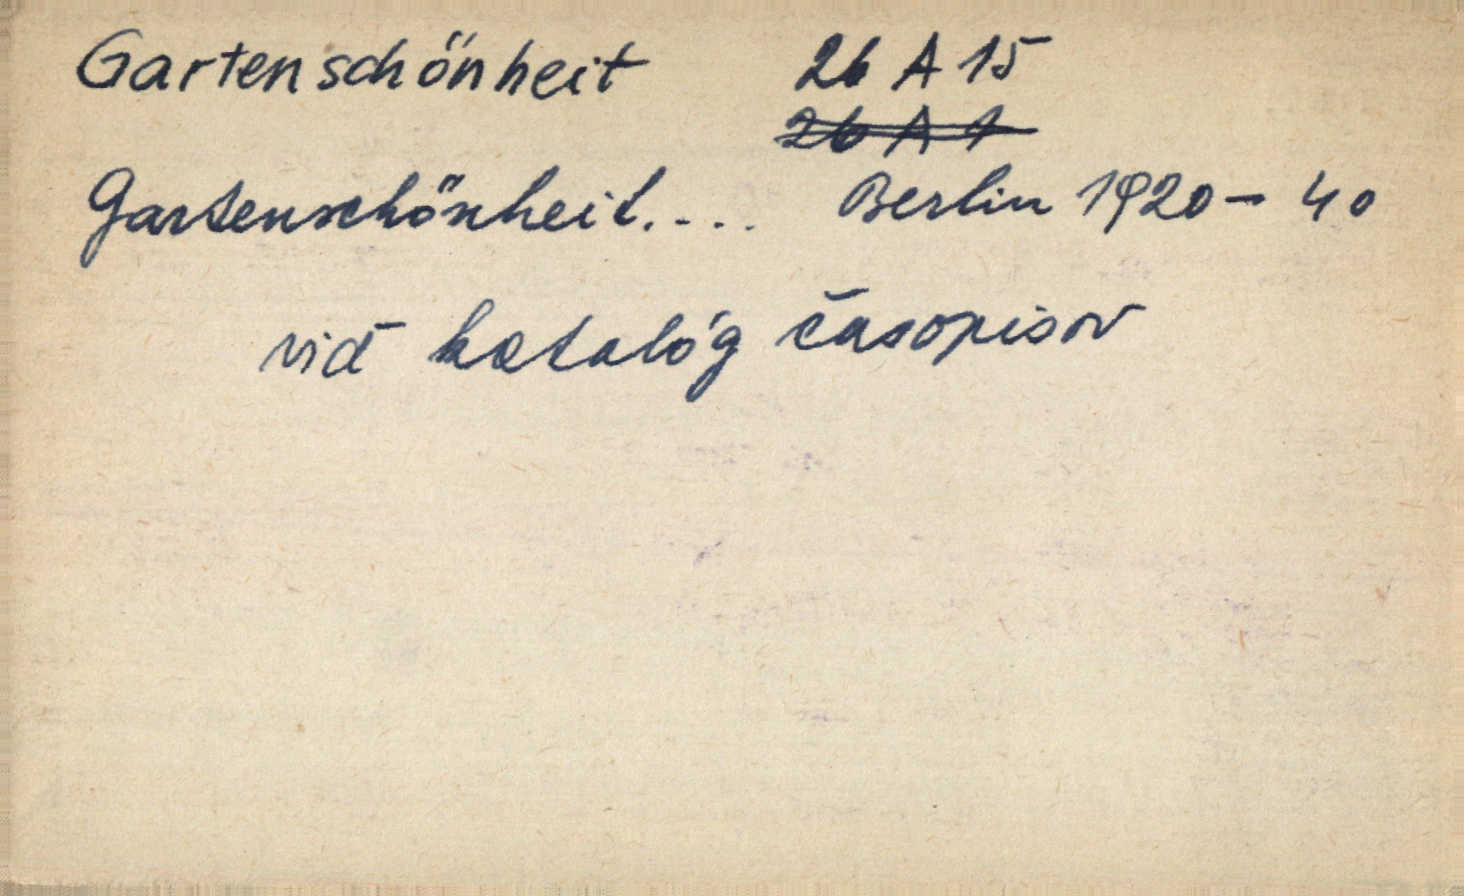 Gartenschönheit 26 A 15
26 A 1
Gartenschönheit.... Berlin 1920 - 40
viď katalóg časopisov